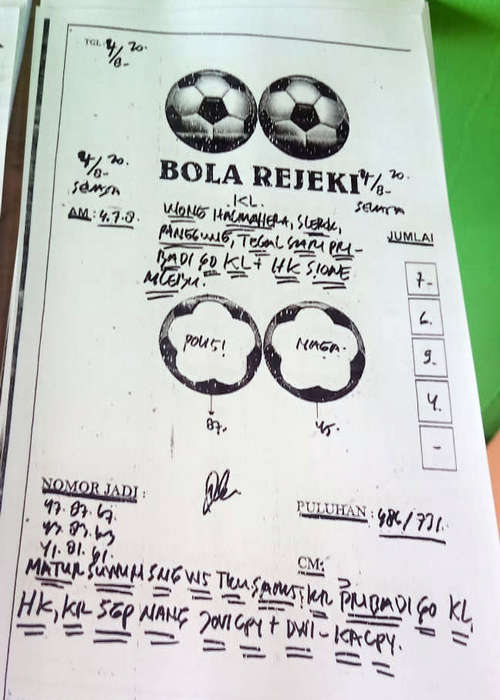 TGL: 4/8- 20.
BOLA REJEKI
4/8- 20.
SELASA
4/8- 20.
SELASA
KL.
AM: 4.7.8.
WONG HALMAHERA, SLEROK,
PANGGUNG, TEGAL SIAM PRI-
BADI GO KL + HK SIONE
MLEBU.
JUMLAH
7-
6.
9.
4.
-
POLISI
NAGA.
87.
45.
NOMOR JADI :
47. 87. 67.
43. 83. 63
41. 81. 61.
PULUHAN : 486/731.
CM:
MATUR SUWUN SNG WS
PRIBADI GO KL,
HK, KR SGP NANG JONICPY + DWI-KACPY.